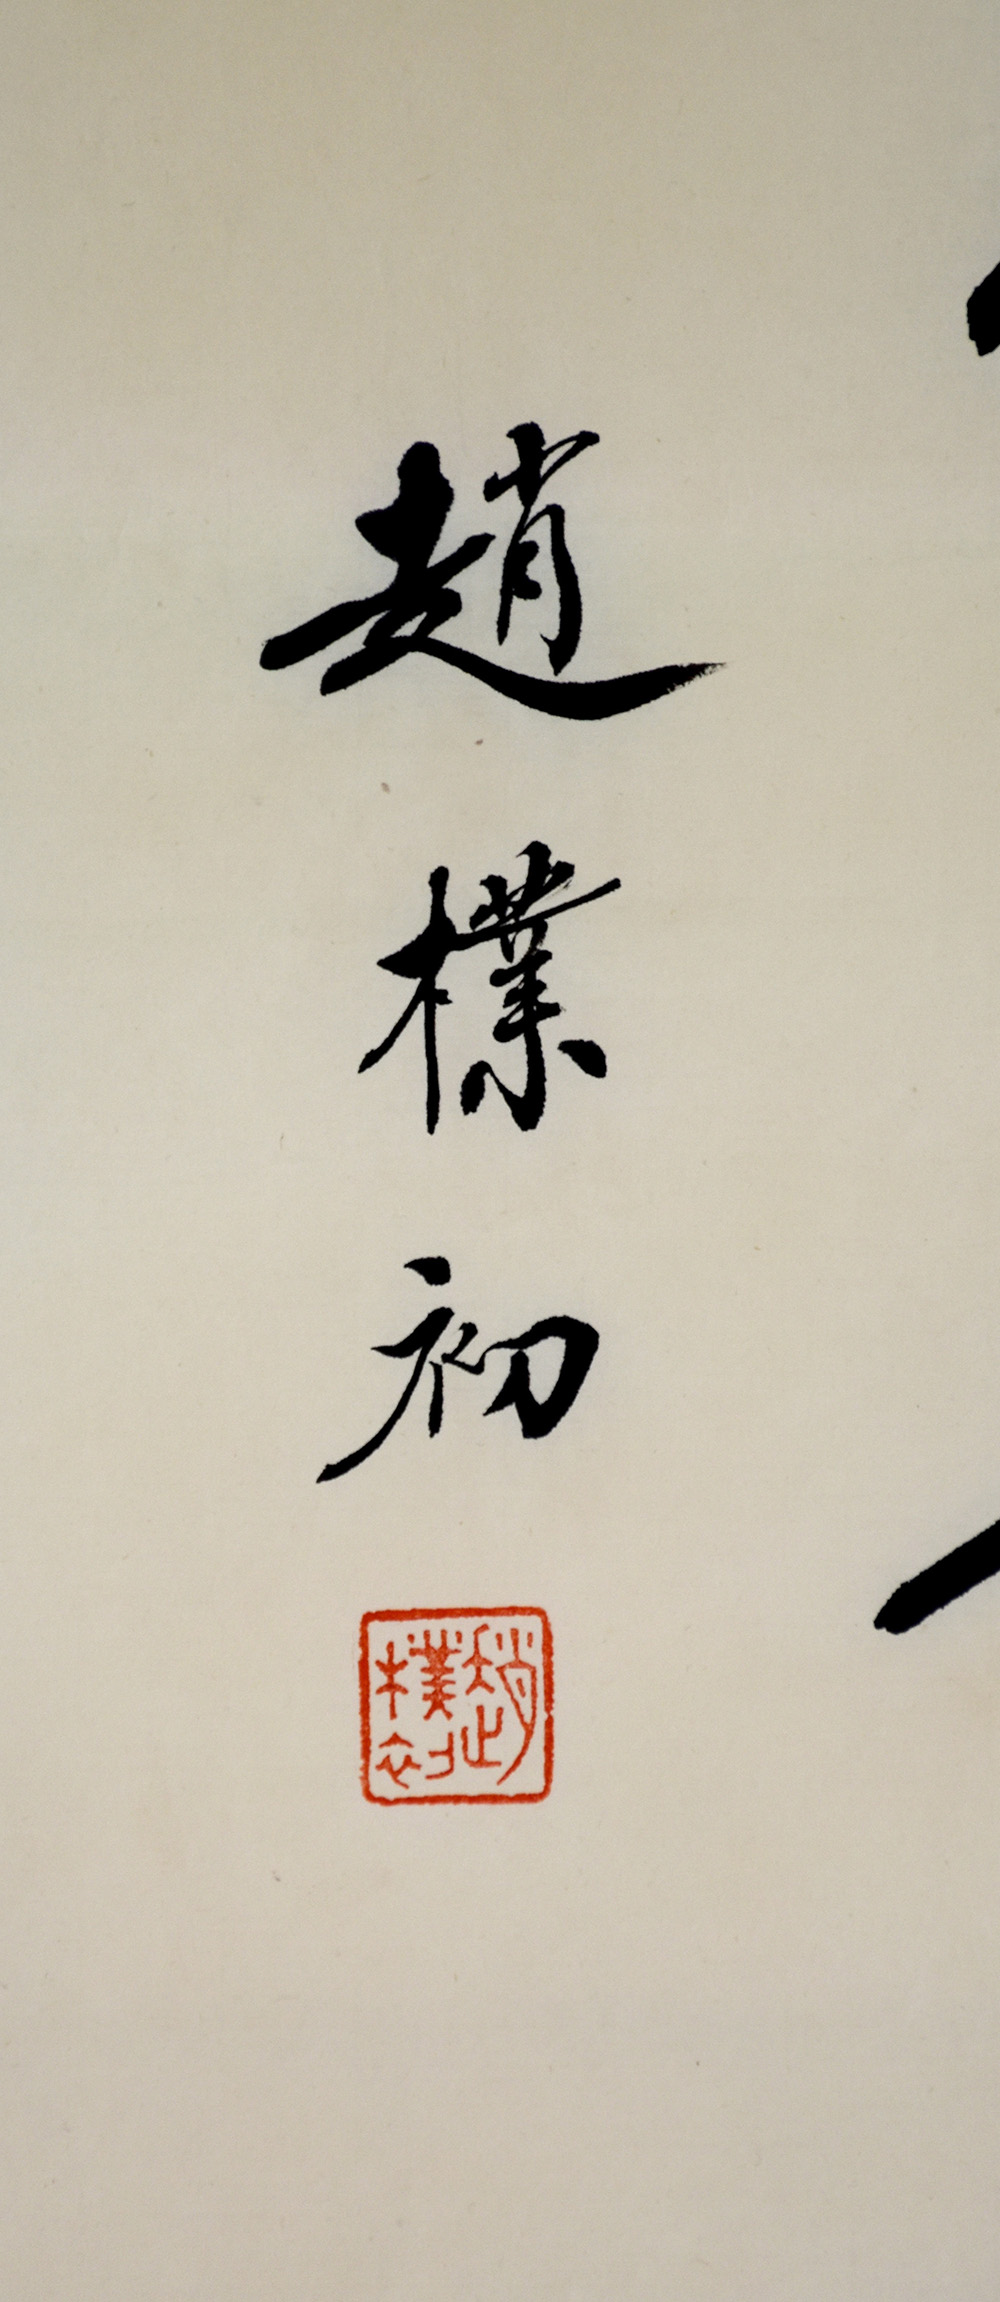 趙樸初
趙樸初